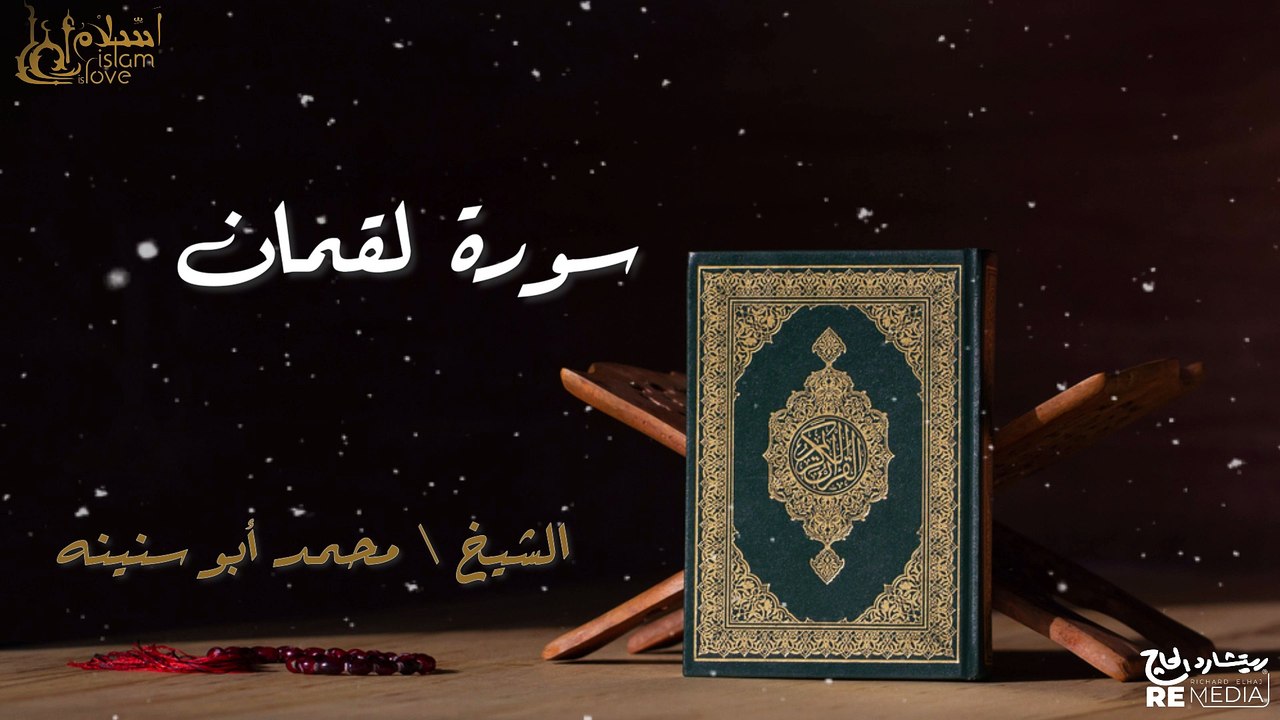 إسلام
islam
is love
سورة لقمان
القرآن الكريم
الشيخ \ محمد أبو سنينه
ريتشارد الحاج
RICHARD ELHAJ
RE MEDIA